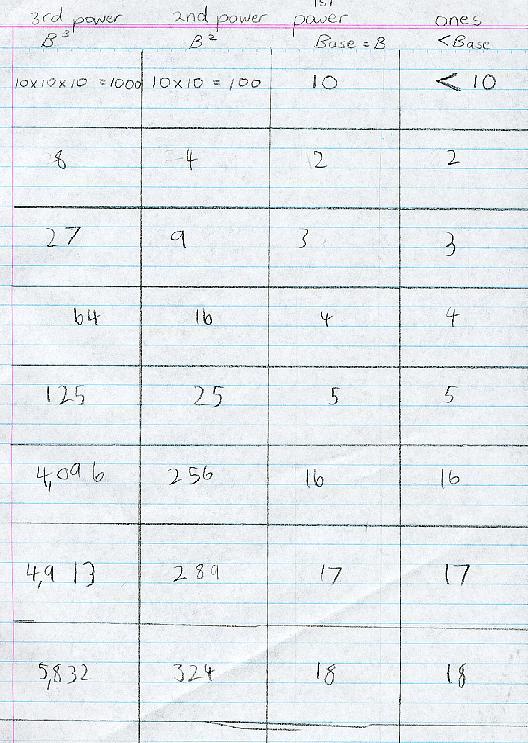 3rd power 2nd power power ones
B³ B² Base = B <Base
10x10x10 = 1000 10x10 = 100 10 < 10
8 4 2 2
27 9 3 3
64 16 4 4
125 25 5 5
4,096 256 16 16
4,913 289 17 17
5,832 324 18 18